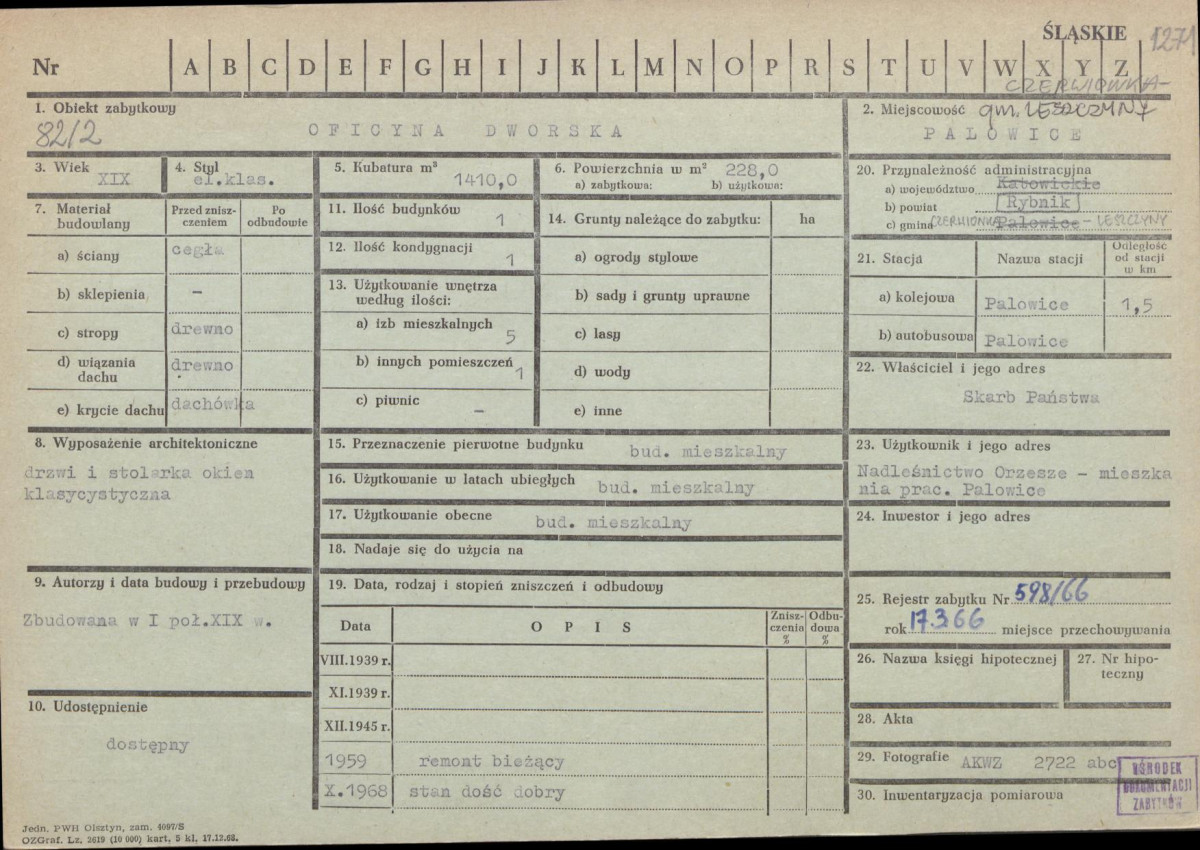 ŚLĄSKIE 1271
Nr A B C D E F G H I J K L M N O P R S T U V W X Y Z
1. Obiekt zabytkowy
82/2
OFICYNA DWORSKA
2. Miejscowość
CZERWIONKA-
gm. LESZCZYNY
PALOWICE
3. Wiek
XIX
4. Styl
el.klas.
5. Kubatura m³
1410,0
6. Powierzchnia w m² 228,0
a) zabytkowa: b) użytkowa:
7. Materiał budowlany
Przed zniszczeniem
Po odbudowie
a) ściany cegła
b) sklepienia –
c) stropy drewno
d) wiązania dachu drewno
e) krycie dachu dachówka
11. Ilość budynków 1
12. Ilość kondygnacji 1
13. Użytkowanie wnętrza według ilości:
a) izb mieszkalnych 5
b) innych pomieszczeń 1
c) piwnic –
14. Grunty należące do zabytku: ha
a) ogrody stylowe
b) sady i grunty uprawne
c) lasy
d) wody
e) inne
20. Przynależność administracyjna
a) województwo Katowickie
b) powiat Rybnik
c) gmina CZERWIONKA Palowice - LESZCZYNY
21. Stacja Nazwa stacji Odległość od stacji w km
a) kolejowa Palowice 1,5
b) autobusowa Palowice
22. Właściciel i jego adres
Skarb Państwa
8. Wyposażenie architektoniczne
drzwi i stolarka okien
klasycystyczna
15. Przeznaczenie pierwotne budynku bud. mieszkalny
16. Użytkowanie w latach ubiegłych bud. mieszkalny
17. Użytkowanie obecne bud. mieszkalny
18. Nadaje się do użycia na
23. Użytkownik i jego adres
Nadleśnictwo Orzesze - mieszka
nia prac. Palowice
24. Inwestor i jego adres
9. Autorzy i data budowy i przebudowy
Zbudowana w I poł.XIX w.
19. Data, rodzaj i stopień zniszczeń i odbudowy
Data OPIS Zniszczenia % Odbudowa %
VIII.1939 r.
XI.1939 r.
XII.1945 r.
1959 remont bieżący
X.1968 stan dość dobry
25. Rejestr zabytku Nr 598/66
rok 17.3.66 miejsce przechowywania
26. Nazwa księgi hipotecznej
27. Nr hipoteczny
10. Udostępnienie
dostępny
28. Akta
29. Fotografie AKWZ 2722 abc
30. Inwentaryzacja pomiarowa
OŚRODEK
DOKUMENTACJI
ZABYTKÓW
Jedn. PWH Olsztyn, zam. 4097/S
OZGraf. Lz. 2619 (10 000) kart, 5 kl, 17.12.68.